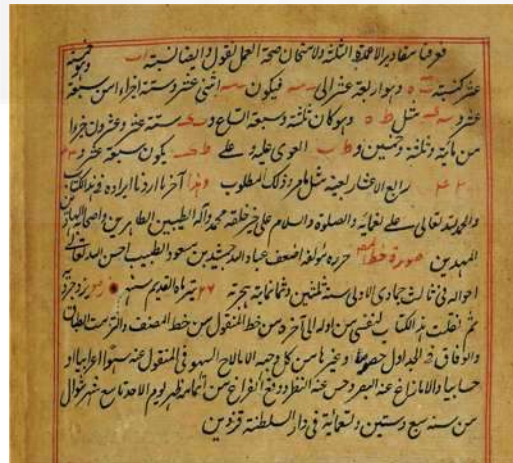 فعرفنا مقادير الاعمدة الثلثة ولامتحان صحة العمل نقول وايضا نسبة
عشر كنسبة وهو اربعة عشر الى فيكون اثنى عشر وستة اجزاء من سبعة
عشر و مثل ط ه وهو كان ثلثة وسبعة اتساع و ستة عشر وعشرون جزوا
من مائة وثلثة وخمسين و ط ب القوى عليه وعلى يكون سبعة عشر و
رابع الاعشار بعينه مثل ما مر وذلك المطلوب وهذا آخر ما اردنا ايراده فى هذا الكتاب
والحمد لله تعالى على نعمائه والصلوة والسلام على خير خلقه محمد وآله الطيبين الطاهرين واصحابه الهادين
المهديين صورة خط حرره مؤلفه اضعف عباد الله جمشيد بن مسعود الطبيب احسن الله تعالى
احواله فى ثالث جمادى الاولى سنة ثلثين وثمانمائة هجرية ٢٦ تير ماه القديم سنه يزدجردية
ثم نقلت هذا الكتاب لنفسى من اوله الى آخره من خط المنقول من خط المصنف والتزمت الطباق
والوفاق فى الجداول خصوصا وغيرها من كل وجه الا ما لاح السهو فى المنقول عنه سهوا اعرابيا او
حسابيا والا ما زاغ عنه البصر وحسر عنه النظر ووقع الفراغ من اتمامه ظهر يوم الاحد تاسع شهر شوال
من سنه سبع وستين وتسعمائة فى دار السلطنة قزوين